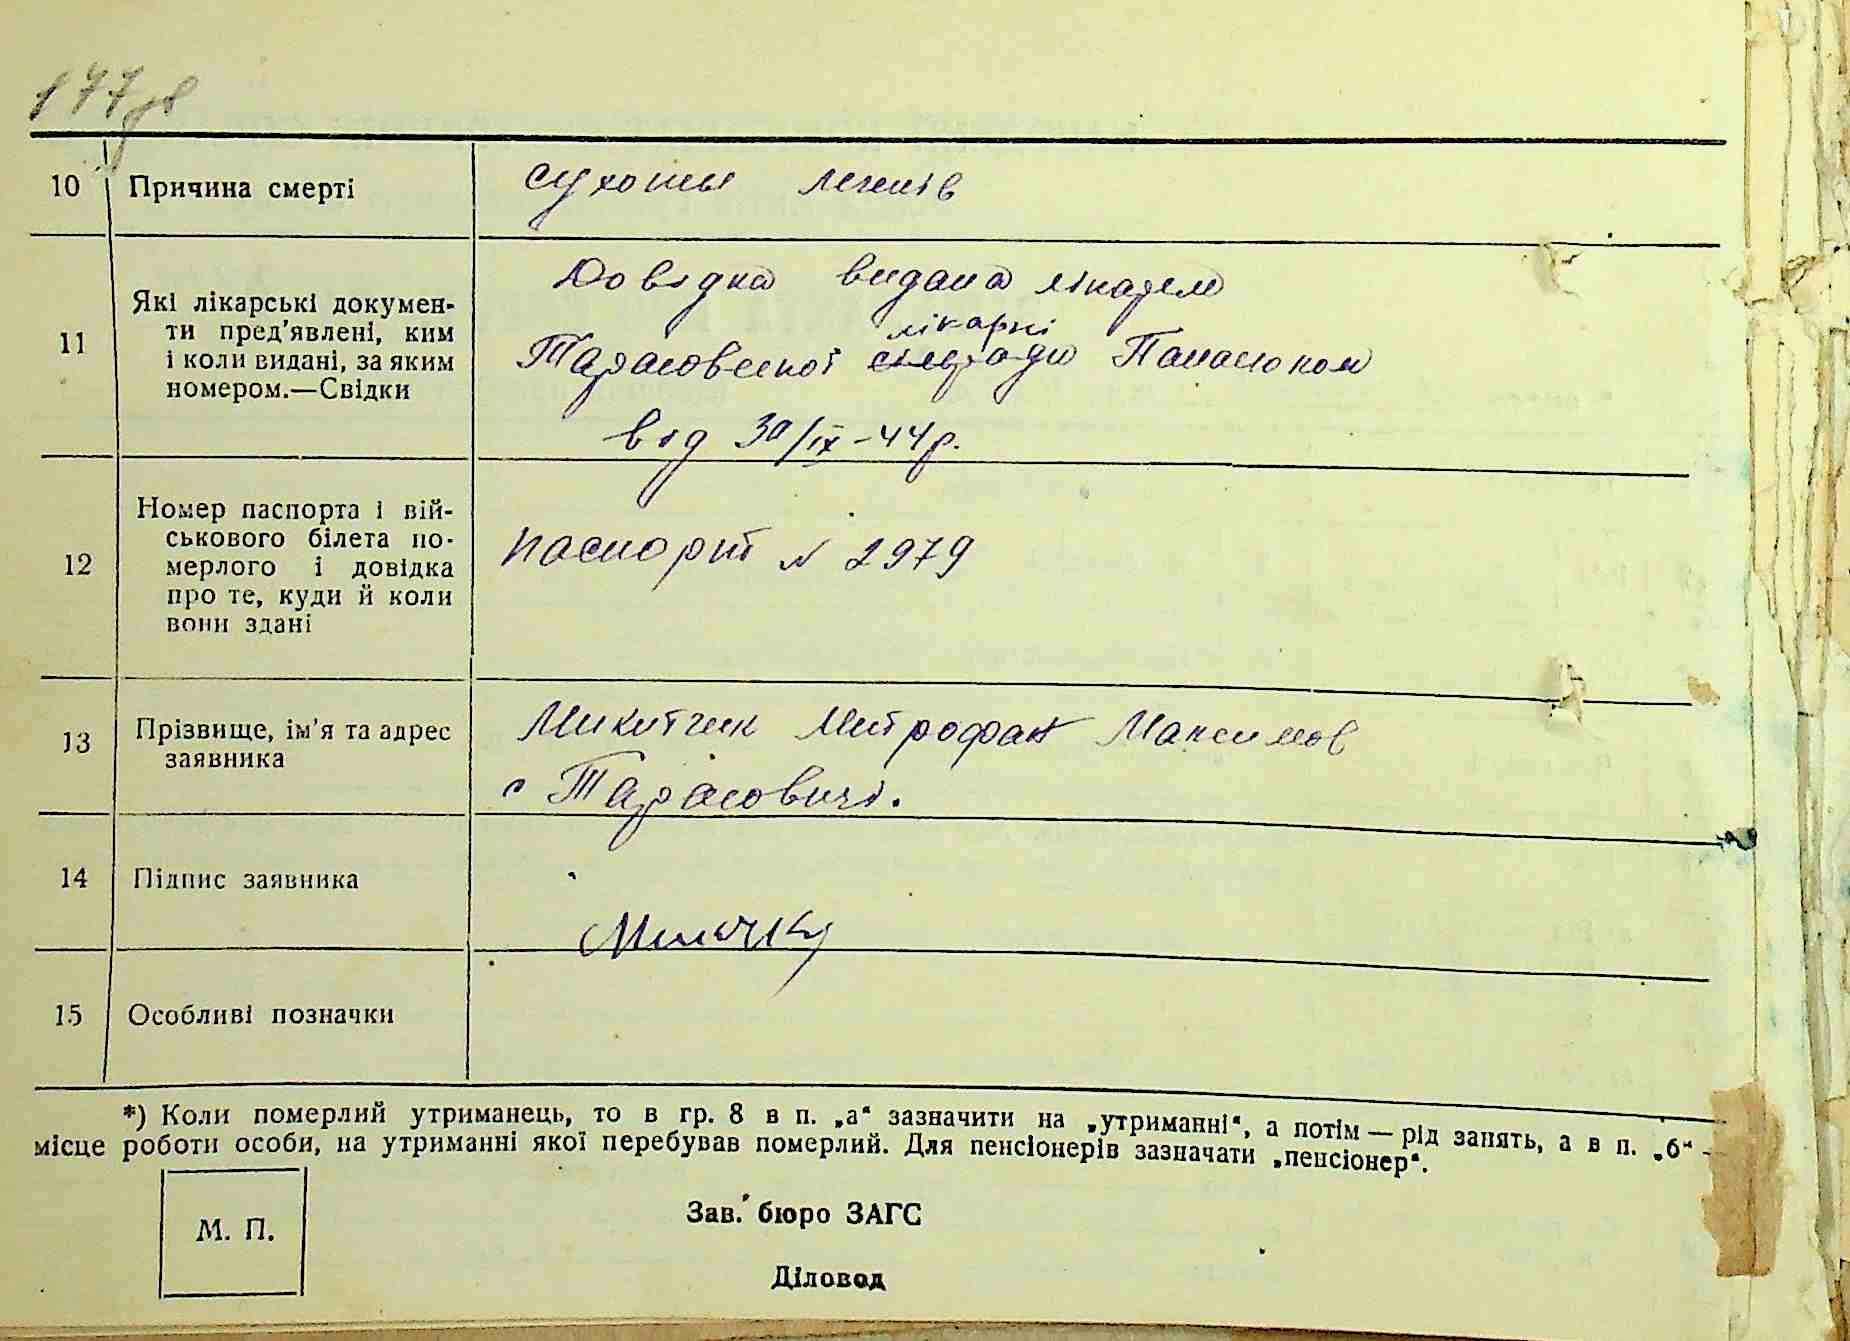 177зв
10 Причина смерті
сухоты легенів
11 Які лікарські докумен-
ти пред'явлені, ким
і коли видані, за яким
номером.—Свідки
Довідка видана лікарем
лікарні
Тарасовеської сільради Панасюком
від 30/IX-44р.
12 Номер паспорта і вій-
ськового білета по-
мерлого і довідка
про те, куди й коли
вони здані
паспорт N 2979
13 Прізвище, ім'я та адрес
заявника
Микитчик Митрофан Максимов
с Тарасовичі.
14 Підпис заявника
15 Особливі позначки
*) Коли померлий утриманець, то в гр. 8 в п. „а“ зазначити на „утриманні“, а потім — рід занять, а в п. „б“ -
місце роботи особи, на утриманні якої перебував померлий. Для пенсіонерів зазначати „пенсіонер“.
М. П.
Зав. бюро ЗАГС
Діловод